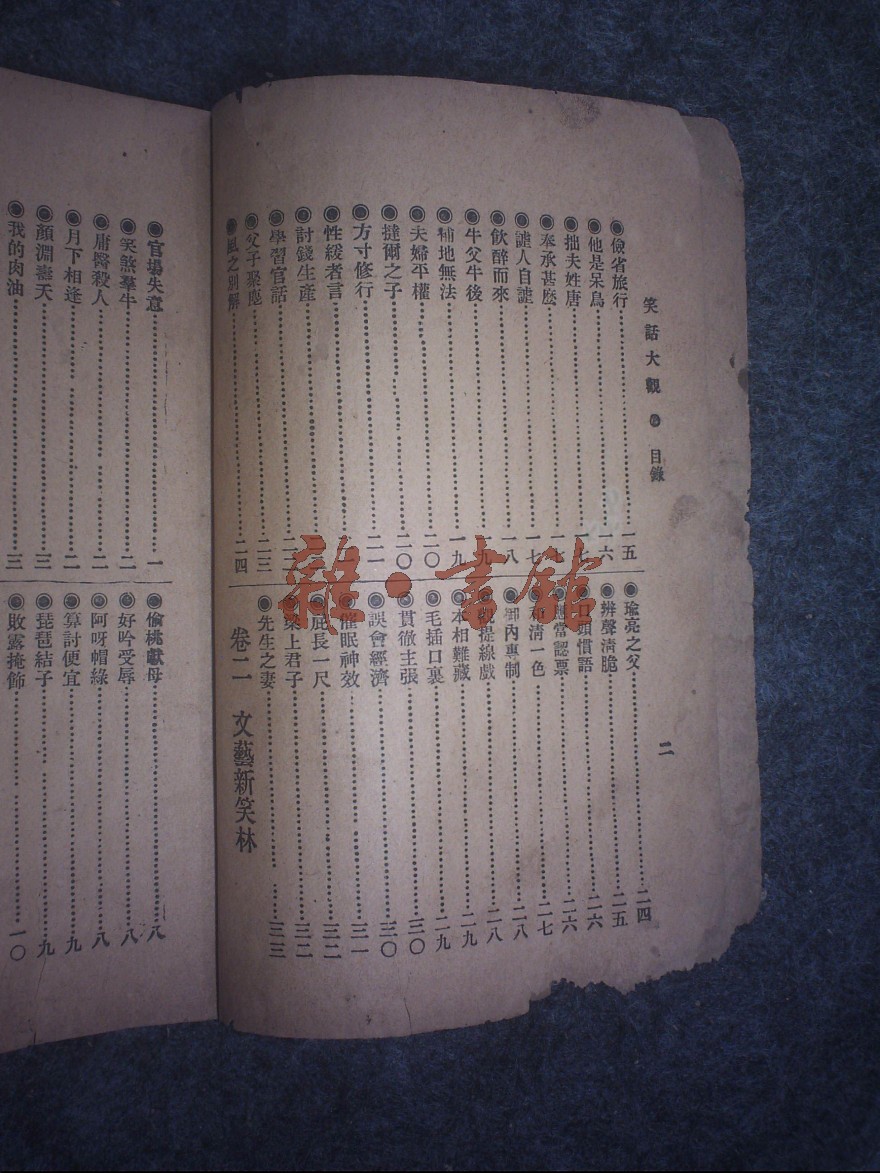 笑話大觀 目錄
二
儉省旅行 一五
他是呆鳥 一六
拙夫姓唐
奉承甚麽
謔人自謔 一七
飲醉而來 一八
牛父牛後
補地無法 一九
夫婦平權 二〇
撻爾之子 二〇
方寸修行 二一
性緩者言
討錢生產
學習官話
父子聚麀 二三
風之別解 二四
瑜亮之父 二四
辨聲清脆 二五
口頭慣語 二六
當認票 二六
和清一色 二七
部內專制 二八
觀提線戲 二八
本相難藏 二九
毛插口裏 二九
貫徹主張 三〇
誤會經濟 三〇
催眠神效 三一
屁長一尺 三二
梁上君子 三二
先生之妻 三三
卷二 文藝新笑林
官場失意 一
笑煞羣牛 二
庸醫殺人 二
月下相逢 二
顏淵壽夭 三
我的肉油 三
偷桃獻母 八
好吟受辱 八
阿呀帽綠 八
算討便宜 九
琵琶結子 九
敗露掩飾 一〇
雜·書館